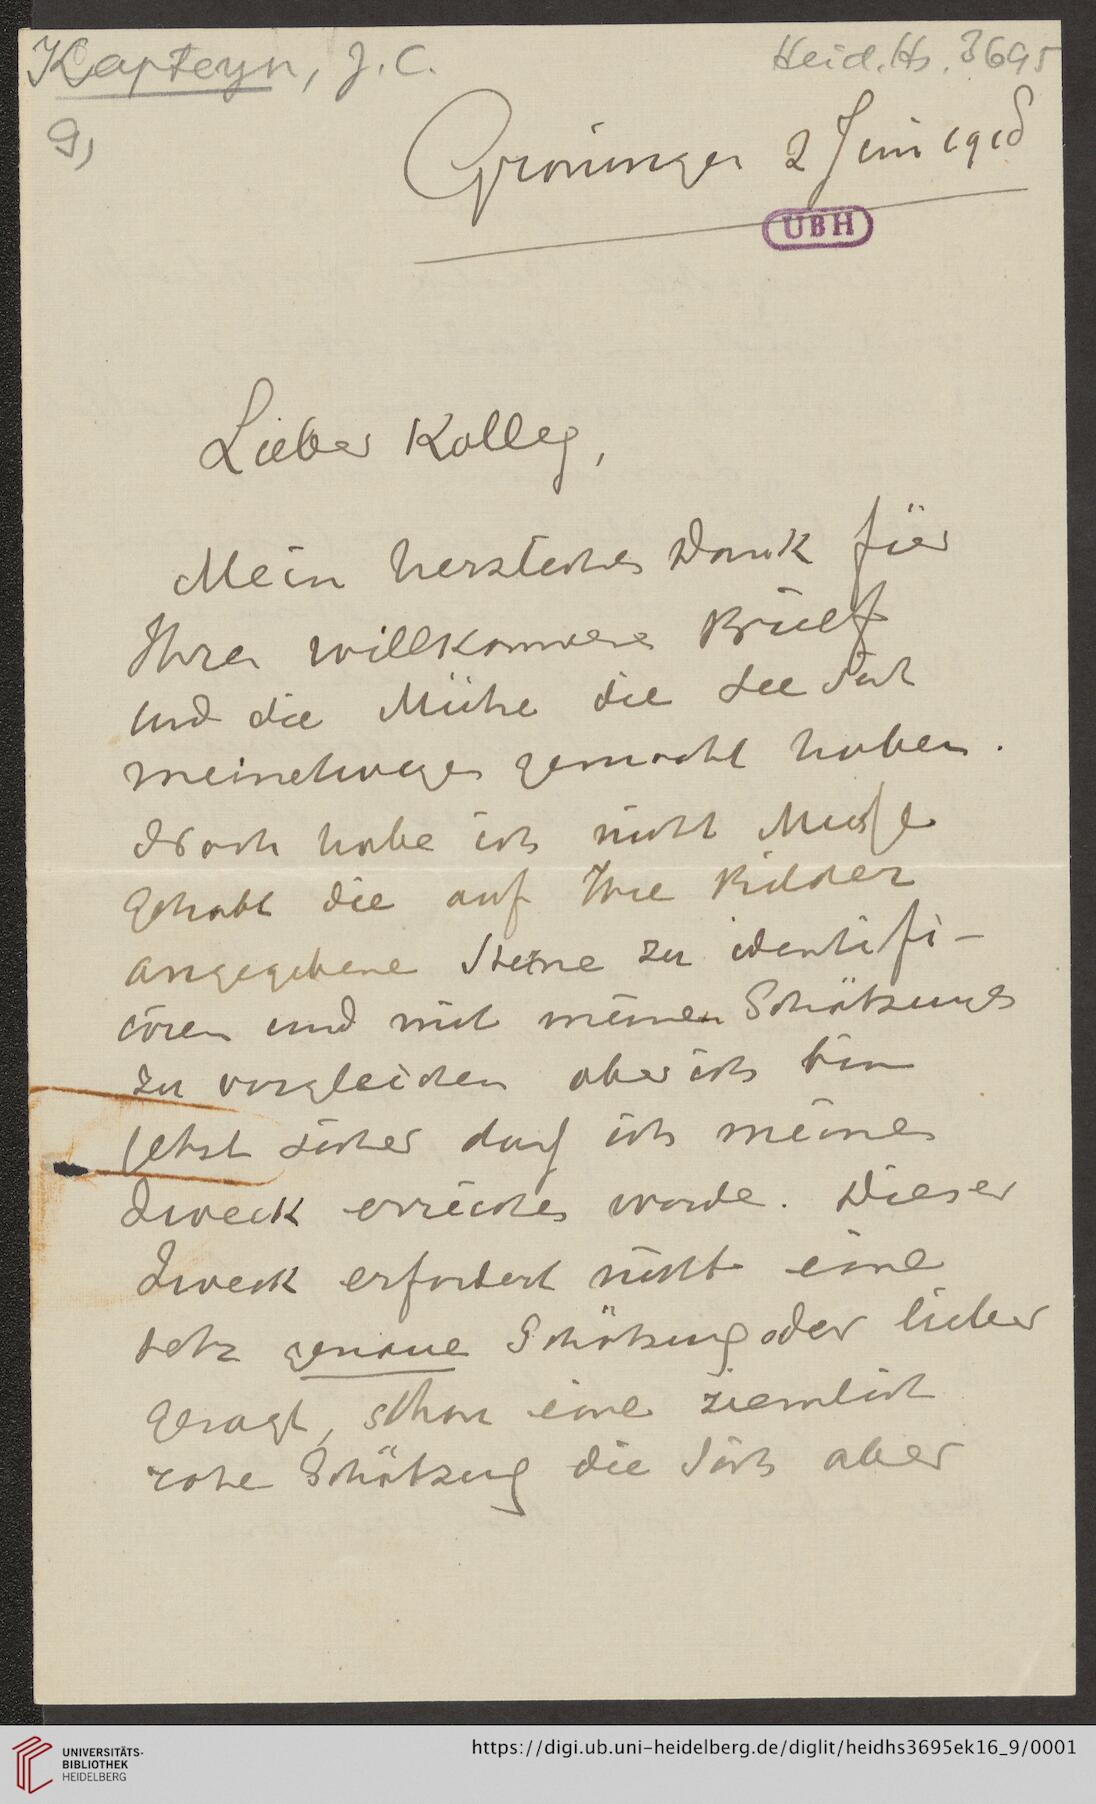 Kapteyn, J. C.
Heid. Hs. 3695
9)
Groningen 2 Juni 1918
UBH
Lieber Kolleg,
Mein herzliches Dank für
Ihren willkommene Brief
und die Mühe die Sie sich
meinetwegen gemacht haben.
Noch habe ich nicht Muße
gehabt die auf Ihre Bilder
angegebene Sterne zu identifi-
ciren und mit meinen Schätzungen
zu vergleichen aber ich bin
jetzt sicher das ich meinen
Zweck erreichen werde. Dieser
Zweck erfordert nicht eine
sehr genaue Schätzung oder lieber
gesagt, schon eine ziemlich
rohe Schätzung die sich aber
UNIVERSITÄTS-
BIBLIOTHEK
HEIDELBERG
https://digi.ub.uni-heidelberg.de/diglit/heidhs3695ek16_9/0001